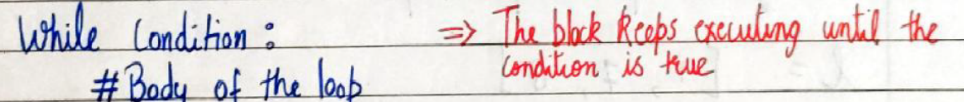 While Condition :
# Body of the loop
=> The block keeps executing until the
condition is true